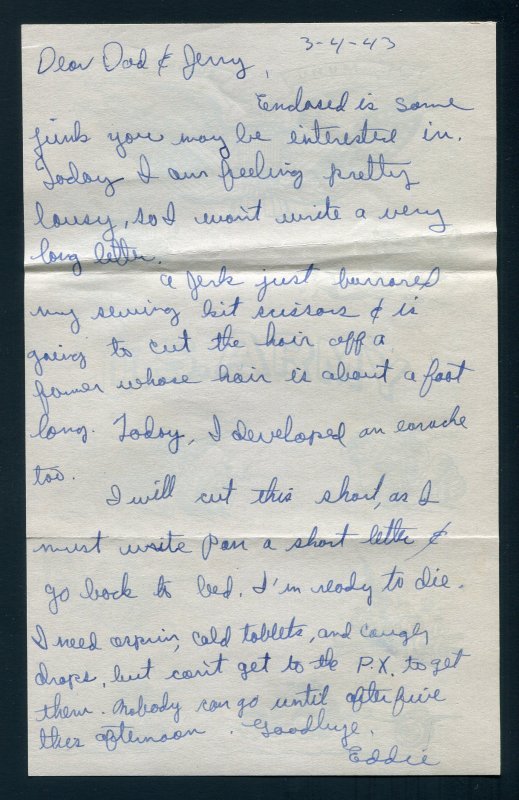 3-4-43
Dear Dad & Jerry,
Enclosed is some
junk you may be interested in.
Today I am feeling pretty
lousy, so I won't write a very
long letter.
A jerk just borrowed
my sewing kit scissors & is
going to cut the hair off a
farmer whose hair is about a foot
long. Today, I developed an earache
too.
I will cut this short, as I
must write Pan a short letter &
go back to bed. I'm ready to die.
I need aspirin, cold tablets, and cough
drops, but can't get to the P.X. to get
them. Nobody can go until after five
this afternoon. Goodbye.
Eddie